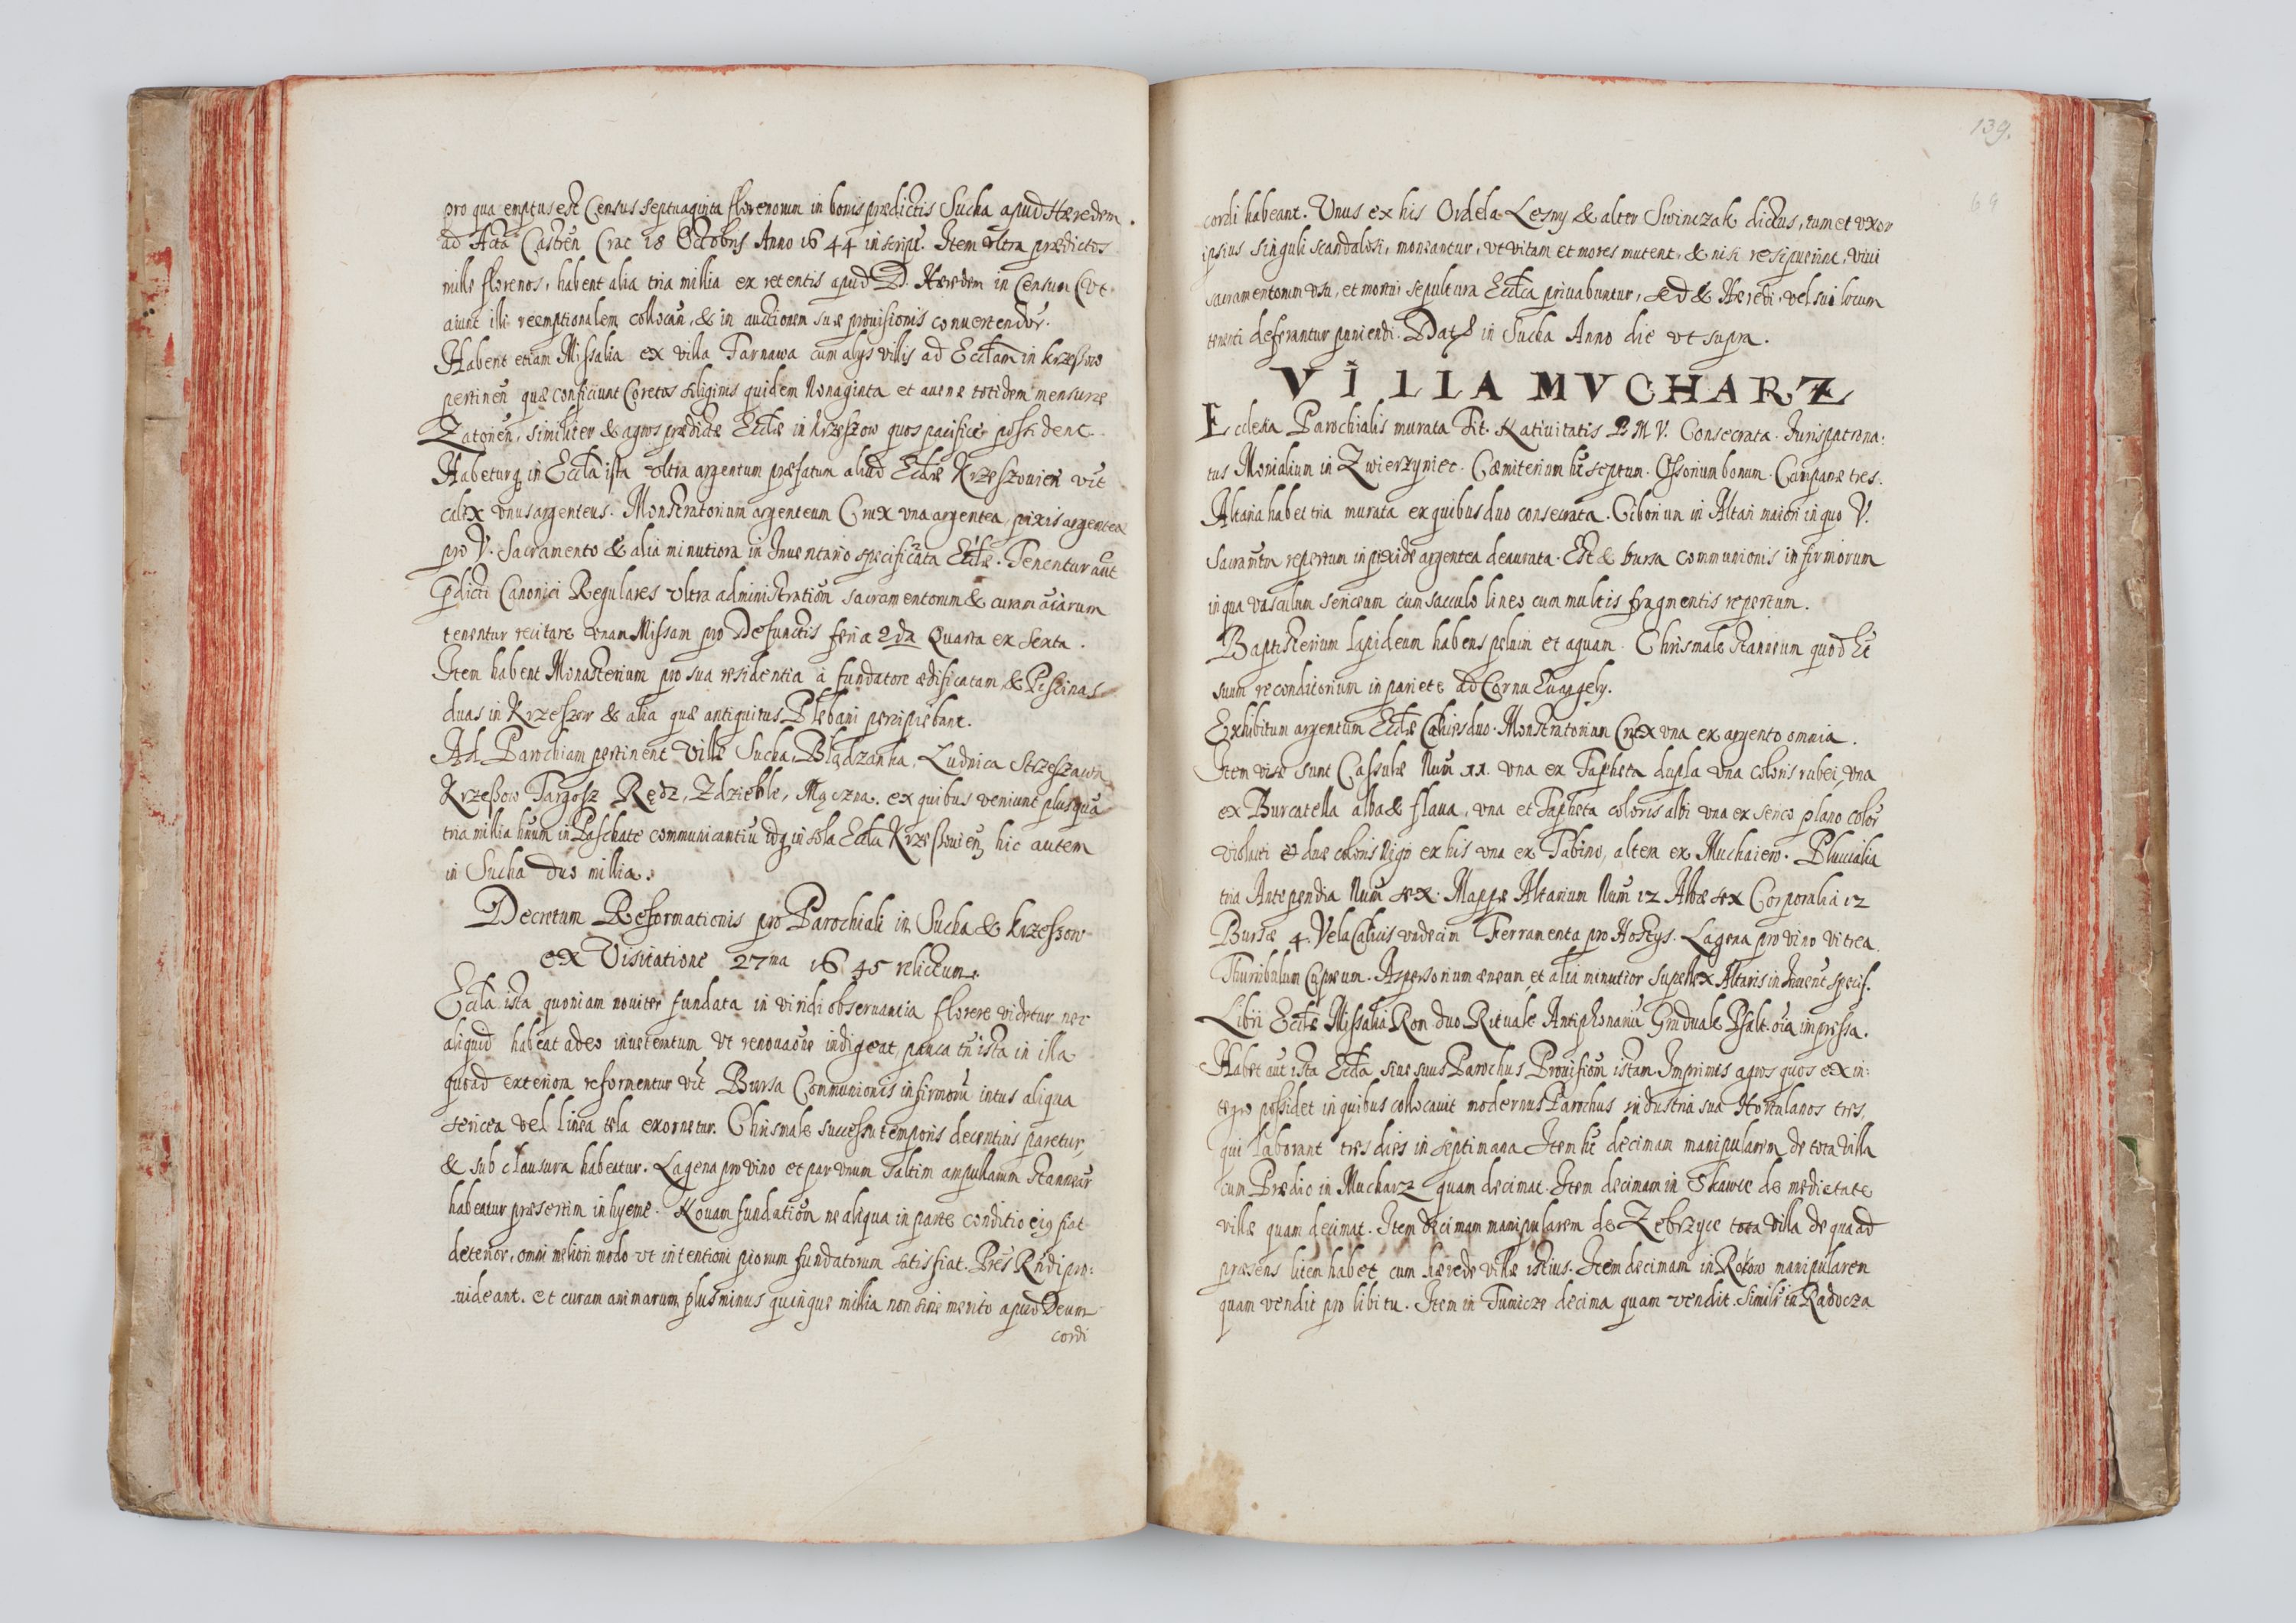 pro qua emptus est Census septuaginta florenorum in bonis prædictis Sucha apud Hæredem
ad Acta Castren Crac 18 Octobris Anno 1644 inscript. Item ultra prædictos
mille florenos, habent alia tria millia ex retentis apud D. Hæredem in Censum (vt
aiunt illi reemptionalem collocan, & in auctionem suæ prouisionis conuertendos.
Habent etiam Missalia ex villa Tarnawa cum alys villis ad Ecclam in Krzeszow
pertinen quæ conficiunt Coretos siliginis quidem Nonaginta et auenæ totidem mensuræ
Zatorien, similiter & agros prædictæ Ecclæ in Krzeszow quos pacifice possident.
Habeturq in Eccla ista vltra argentum præfatum aliud Ecclæ Krzeszouien vit
calix vnus argenteus. Monstratorium argenteum Crux vna argentea, pixis argentea
pro V. Sacramento & alia minutiora in Inuentario specificata Ecclæ. Tenentur aut
pdicti Canonici Regulares vltra administration sacramentorum & curam aiarum
tenentur recitare vnam Missam pro Defunctis feria 2da Quarta ex Sexta.
Item habent Monasterium pro sua residentia à fundatore ædificatam & Piscinas
duas in Krzeszow & alia quæ antiquitus Plebani percipiebant.
Ad Parochiam pertinent Villæ Sucha, Błądzanka, Ludnica Strzeszawa
Krzeszow Targosz Rędz, Zdzieble, Mączna. ex quibus veniunt plusqua
tria millia hnum in Paschate communicantiu idq in sola Eccla Krzeszouien hic autem
in Sucha duo millia.
Decretum Reformationis pro Parochiali in Sucha & Krzeszow
ex Visitatione 27ma 1645 relictum.
Eccla ista quoniam nouiter fundata in viridi obseruantia florere videtur nec
aliquid habeat adeo inueteratum vt renouaone indigeat, pauca tn ista in illa
quoad exteriora reformentur vit Bursa Communionis infirmoru intus aliqua
sericea vel linea tela exornetur. Chrismale successu temporis decentius paretur,
& sub clausura habeatur. Lagena pro vino et par vnum saltim ampullarum stannear
habeatur præsertim in hyeme. Nouam fundation ne aliqua in parte conditio eius fiat
deterior, omni meliori modo vt intentioni piorum fundatorum satisfiat. Pres Rndi pro:
uideant. et curam animarum plus minus quinque millia non sine merito apud Deum
cordi
139.
69
cordi habeant. Vnus ex his Ordela Lesny & alter Swinczak dictus, tum et vxor
ipsius singuli scandalosi, moneantur, vt vitam et mores mutent, & nisi resipuerint, viui
sacramentorum vsu, et mortui sepultura Ecclca priuabuntur, sed & Hæredi, vel sui locum
tenenti deferantur puniendi. Dat in Sucha Anno die vt supra.
VILLA MVCHARZ
Ecclesia Parochialis murata Tit. Natiuitatis B M V. Consecrata. Iurispatrona:
tus Monialium in Zwierzyniec. Cæmiterium ht septum. Ossorium bonum. Campanæ tres.
Altaria habet tria murata ex quibus duo consecrata. Ciborium in Altari maiori in quo V.
Sacramtum repertum in pixide argentea deaurata. Est & bursa communionis infirmorum
in qua vasculum sericeum cum sacculo lineo cum multis fragmentis repertum.
Baptisterium lapideum habens peluim et aquam. Chrismale stanneum quod ht
suum reconditorium in pariete ad Cornu Euangely.
Exhibitum argentum Ecclæ Calices duo. Monstratorium Crux vna ex argento omnia.
Item visæ sunt Cassulæ Num 11. vna ex Tapheta dupla vna coloris rubei, vna
ex Burcatella alba & flaua, vna et Tapheta coloris albi vna ex serico plano color
violacei & duæ coloris nigri ex his vna ex Tabino, altera ex Muchaiero. Pluuialia
tria Antependia Num sex. Mappæ Altarium Num 12 Albæ sex Corporalia 12
Bursæ 4. Vela Calicis vndecim Ferramenta pro Hostys. Lagena pro vino vitrea
Thuribulum Cupreum. Aspersorium æneum, et alia minutior supellex Altaris in Inuent specif.
Libri Ecclæ Missalia Rom duo Rituale Antiphonariu Graduale Psalt. oia impressa.
Habet aut ista Eccla siue suus Parochus Prouision istam. Imprimis agros quos ex in:
tegro possidet in quibus collocauit modernus Parochus industria sua Hortulanos tres,
qui laborant tres dies in septimana Item ht decimam manipularem de tota Villa
cum Prædio in Mucharz quam decimat. Item decimam in Skawce de medietate
villæ quam decimat. Item decimam manipularem de Zebrzyce tota Villa de qua ad
præsens litem habet cum hærede villæ istius. Item decimam in Rokow manipularem
quam vendit pro libitu. Item in Tumicze decima quam vendit. Similr in Radocza